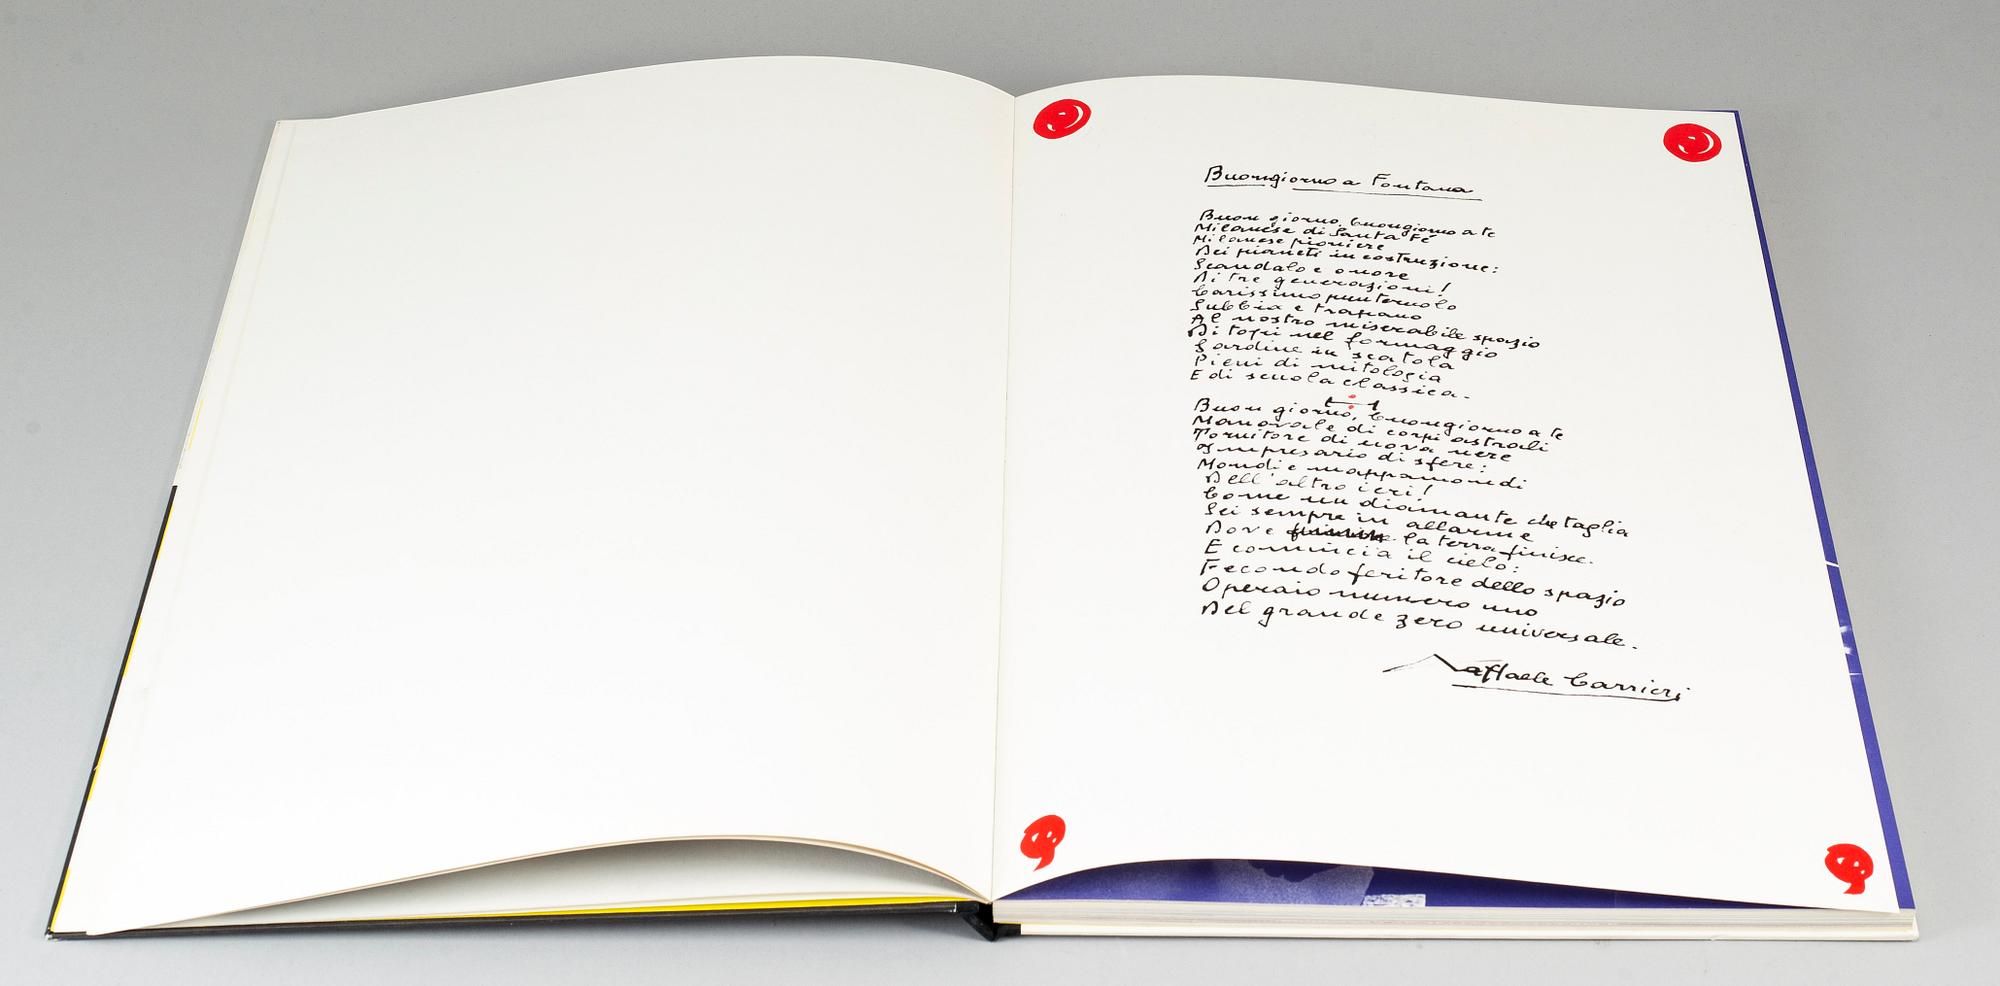 Buongiorno a Fontana
Buon giorno, buongiorno a te
Milanese di Santa Fé
Milanese pioniere
Dei pianeti in costruzione:
Scandalo e onore
Di tre generazioni!
Carissimo punteruolo
Subbia e trapano
Al nostro miserabile spazio
Di topi nel formaggio
Sardine in scatola
Pieni di mitologia
E di scuola classica.
Buon giorno, buongiorno a te
Manovale di corpi astrali
Tornitore di nova nere
Impresario di sfere:
Mondi e mappamondi
Dell'altro ieri!
Come un diamante che taglia
Sei sempre in allarme
Dove la terra finisce.
E comincia il cielo:
Fecondo feritore dello spazio
Operaio numero uno
Del grande zero universale.
Raffaele Carrieri